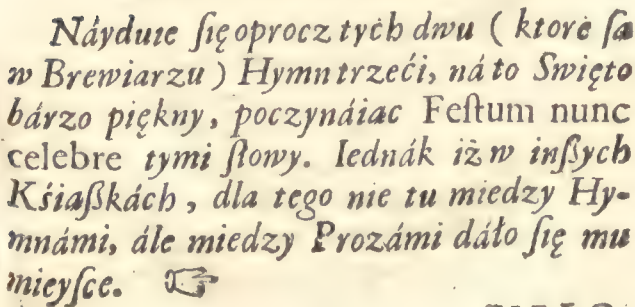 Náyduie ſię oprocz tych dwu ( ktore ſa
w Brewiarzu ) Hymn trzeći, ná to Swięto
bárzo piękny, poczynáiac Feſtum nunc
celebre tymi ſłowy. Iednák iż w inßych
Kśiaßkách, dla tego nie tu miedzy Hy-
mnámi, ále miedzy Prozámi dáło ſię mu
mieyſce. ☞